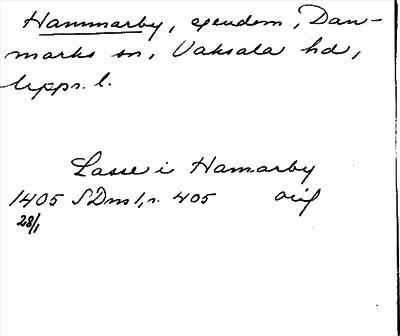 Hammarby, egendom, Dan-
marks sn, Vaksala hd,
Upps. l.
Lasse i Hamarby
1405 SDns 1, s. 405
28/1